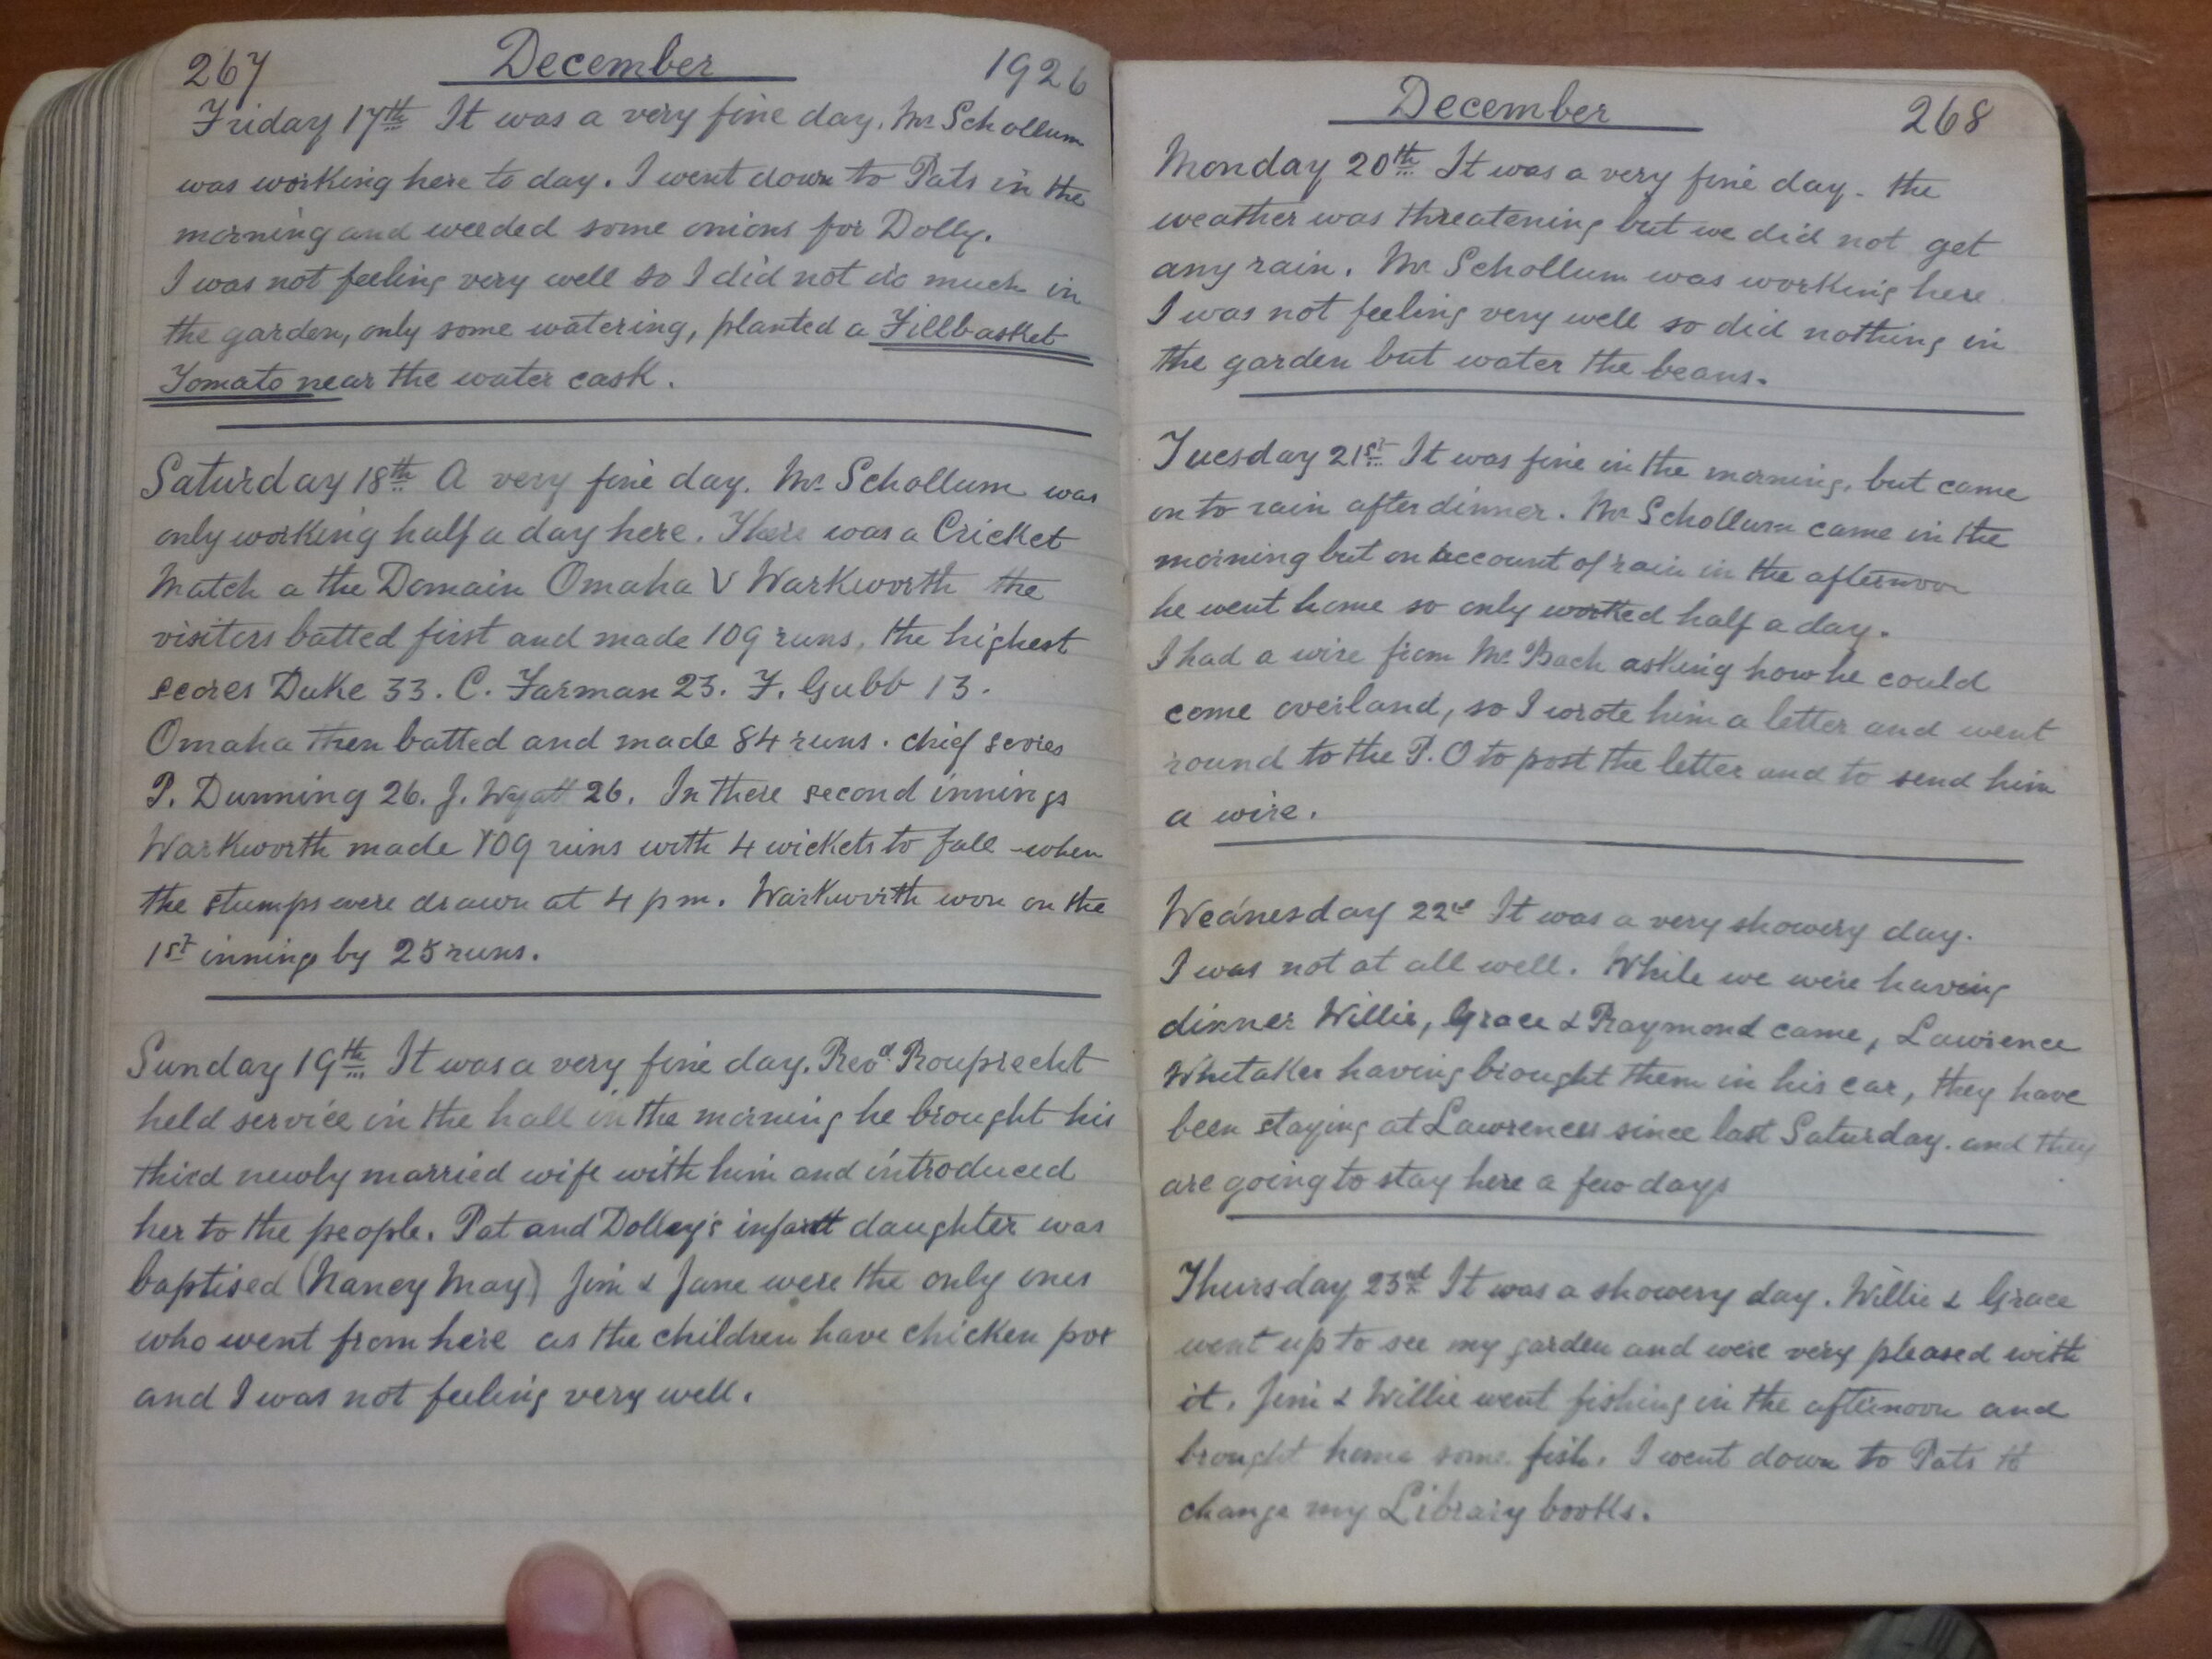 267 December 1926
Friday 17th It was a very fine day. Mr Schollum
was working here to day. I went down to Pats in the
morning and weeded some onions for Dolly.
I was not feeling very well so I did not do much in
the garden, only some watering, planted a Fillbasket
Tomato near the water cask.
Saturday 18th A very fine day. Mr Schollum was
only working half a day here. There was a Cricket
Match a the Domain Omaha V Warkworth the
visitors batted first and made 109 runs, the highest
scores Duke 33. C. Farman 23. F. Gubb 13.
Omaha then batted and made 84 runs. chief scores
P. Dunning 26. J. Wyatt 26. In there second innings
Warkworth made 109 runs with 4 wickets to fall when
the stumps were drawn at 4 pm. Warkworth won on the
1st inning by 25 runs.
Sunday 19th It was a very fine day. Revd Rouprecht
held service in the hall in the morning he brought his
third newly married wife with him and introduced
her to the people. Pat and Dolley's infant daughter was
baptised (Nancy May) Jim & Jane were the only ones
who went from here as the children have chicken pox
and I was not feeling very well.
December 268
Monday 20th It was a very fine day. the
weather was threatening but we did not get
any rain. Mr Schollum was working here
I was not feeling very well so did nothing in
the garden but water the beans.
Tuesday 21st It was fine in the morning, but came
on to rain after dinner. Mr Schollum came in the
morning but on account of rain in the afternoon
he went home so only worked half a day.
I had a wire from Mr Bach asking how he could
come overland, so I wrote him a letter and went
round to the P.O to post the letter and to send him
a wire.
Wednesday 22nd It was a very showery day.
I was not at all well. While we were having
dinner Willie, Grace & Raymond came, Lawrence
Whitaker having brought them in his car, they have
been staying at Lawrences since last Saturday. and they
are going to stay here a few days
Thursday 23rd It was a showery day. Willie & Grace
went up to see my garden and were very pleased with
it. Jim & Willie went fishing in the afternoon and
brought home some fish. I went down to Pats to
change my Library books.